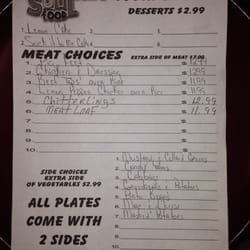 SOUL
FOOD
DESSERTS $2.99
1. Lemon Cake
2. Sock it to Me Cake
MEAT CHOICES
EXTRA SIDE OF MEAT $7.00
1.
$ 12.99
2. Chicken & Dressing $ 11.99
3. Beef Tips over Rice $ 11.99
4. Lemon Pepper Chicken over Rice $ 11.99
5. Chitterlings $ 12.99
6. MEATLOAF $ 11.99
7. $
8. $
9. $
10. $
SIDE CHOICES
EXTRA SIDE
OF VEGETABLES $2.99
ALL PLATES
COME WITH
2 SIDES
1. Mustard & Collard Greens
2. Candy Yams
3. Cabbage
4. & Potatoes
5. Beans
6. Mac & Cheese
7. Mashed Potatoes
8.
9.
10.